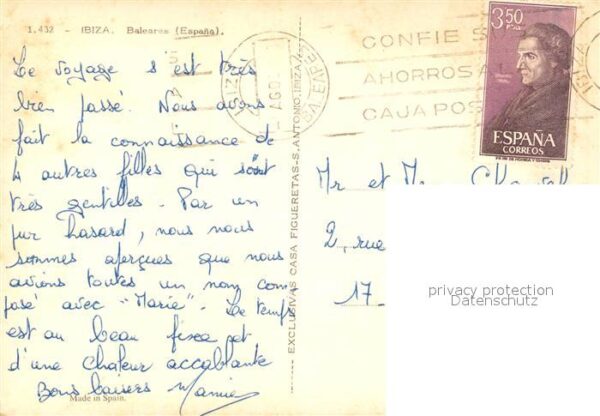 1.432 - IBIZA. Baleares (España).
Le voyage s'est très
bien passé. Nous avons
fait la connaissance de
4 autres filles qui sont
très gentilles. Par un
pur hasard, nous nous
sommes aperçues que nous
avions toutes un nom com
posé avec "Marie". Le temps
est au beau fixe et
d'une chaleur accablante
Bons baisers
Made in Spain.
EXCLUSIVAS CASA FIGUERETAS-S. ANTONIO, IBIZA
IBIZA
AGO
CONFIE S
AHORROS A L
CAJA POS
IBIZA
3,50
PTAS
ESPAÑA
CORREOS
Mr et Mme
2, rue
17
privacy protection
Datenschutz